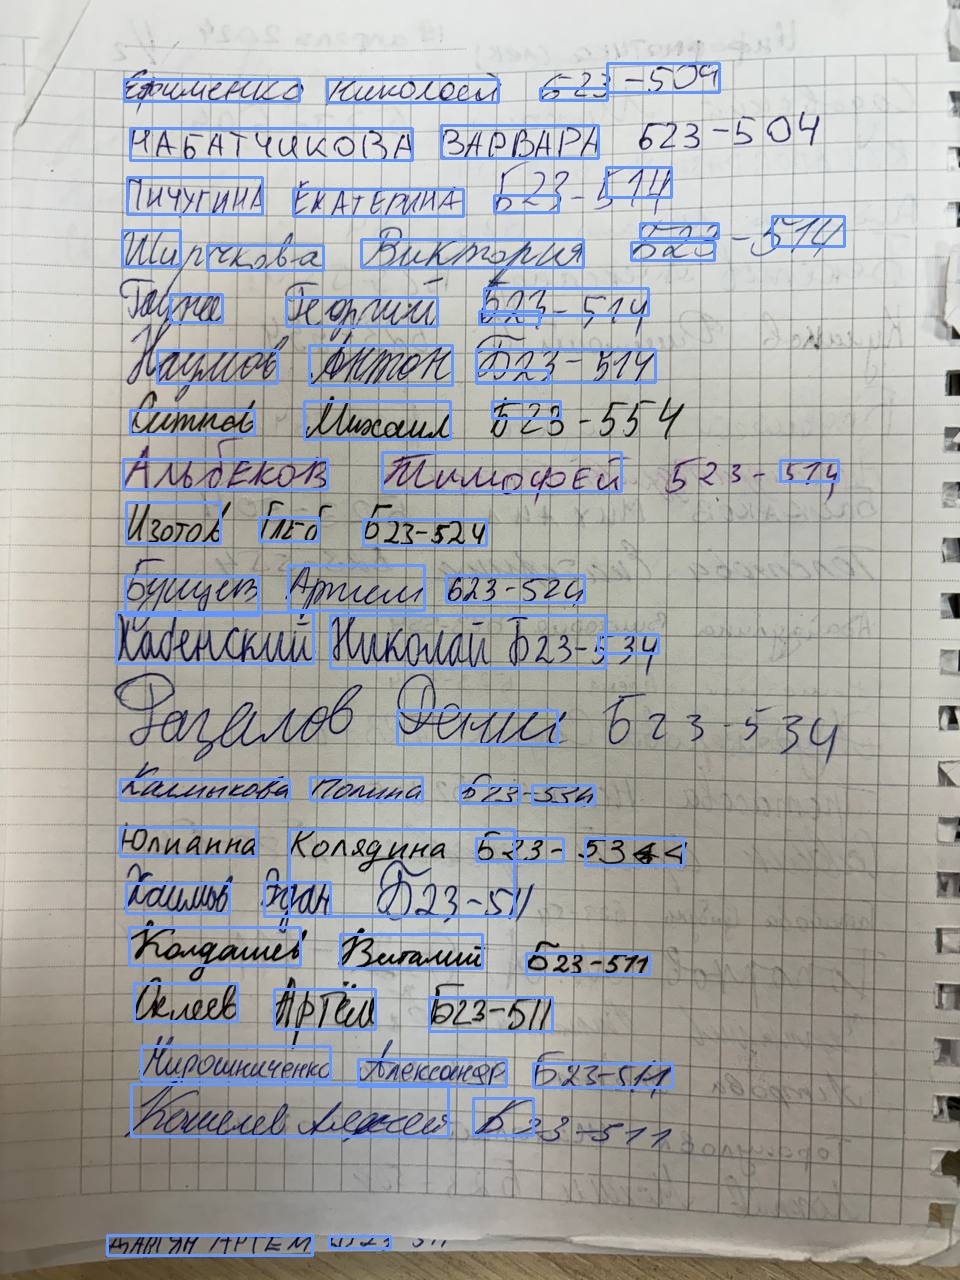 Ефименко Николай Б23-504
НАБАТЧИКОВА ВАРВАРА Б23-504
ПИЧУГИНА ЕКАТЕРИНА Б23-514
Ширчкова Виктория Б23-514
Георгий Б23-514
Наумов Антон Б23-514
Ситков Михаил Б23-554
Альбеков Тимофей Б23-514
Изотов Глеб Б23-524
Артем Б23-524
Хабенский Николай Б23-534
Разалов Денис Б23-534
Калмыкова Полина Б23-534
Юлианна Колядина Б23-534
Хаимов Эдан Б23-511
Колдашёв Виталий Б23-511
Оклеев Артём Б23-511
Мирошниченко Александр Б23-511
Кошелев Алексей Б23-511
АРТЕМ